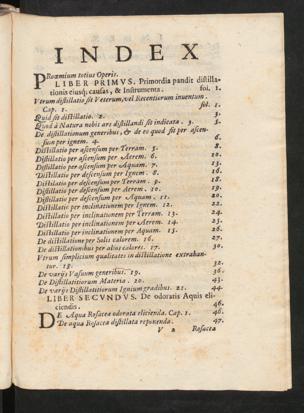 INDEX
PRoœmium totius Operis.
LIBER PRIMVS. Primordia pandit distilla-
tionis eiusq; causas, & Instrumenta. fol. 1.
Vtrum distillatio sit Veterum, vel Recentiorum inuentum.
Cap. 1. fol. 1.
Quid sit distillatio. 2. 3.
Quod à Natura nobis ars distillandi sit indicata. 3. 5.
De distillationum generibus, & de eo quod sit per ascen-
sum per ignem. 4. 6.
Distillatio per ascensum per Terram. 5. 8.
Distillatio per ascensum per Aerem. 6. 10.
Distillatio per ascensum per Aquam. 7. 13.
Distillatio per descensum per Ignem. 8. 16.
Distillatio per descensum per Terram. 9. 18.
Distillatio per descensum per Aerem. 10. 19.
Distillatio per descensum per Aquam. 11. 20.
Distillatio per inclinationem per Ignem. 12. 22.
Distillatio per inclinationem per Terram. 13. 24.
Distillatio per inclinationem per Aerem. 14. 25.
Distillatio per inclinationem per Aquam. 15. 26.
De distillatione per Solis calorem. 16. 27.
De distillationibus per alios calores. 17. 30.
Vtrum simplicium qualitates in distillatione extrahan-
tur. 18. 32.
De varijs Vasuum generibus. 19. 36.
De Distillatitiorum Materia. 20. 43.
De varijs Distillatitiorum Ignium gradibus. 21. 44.
LIBER SECVNDVS. De odoratis Aquis eli-
ciendis. 46.
DE Aqua Rosacea odorata elicienda. Cap. 1. 46.
De aqua Rosacea distillata reponenda. 47.
V 2 Rosacea